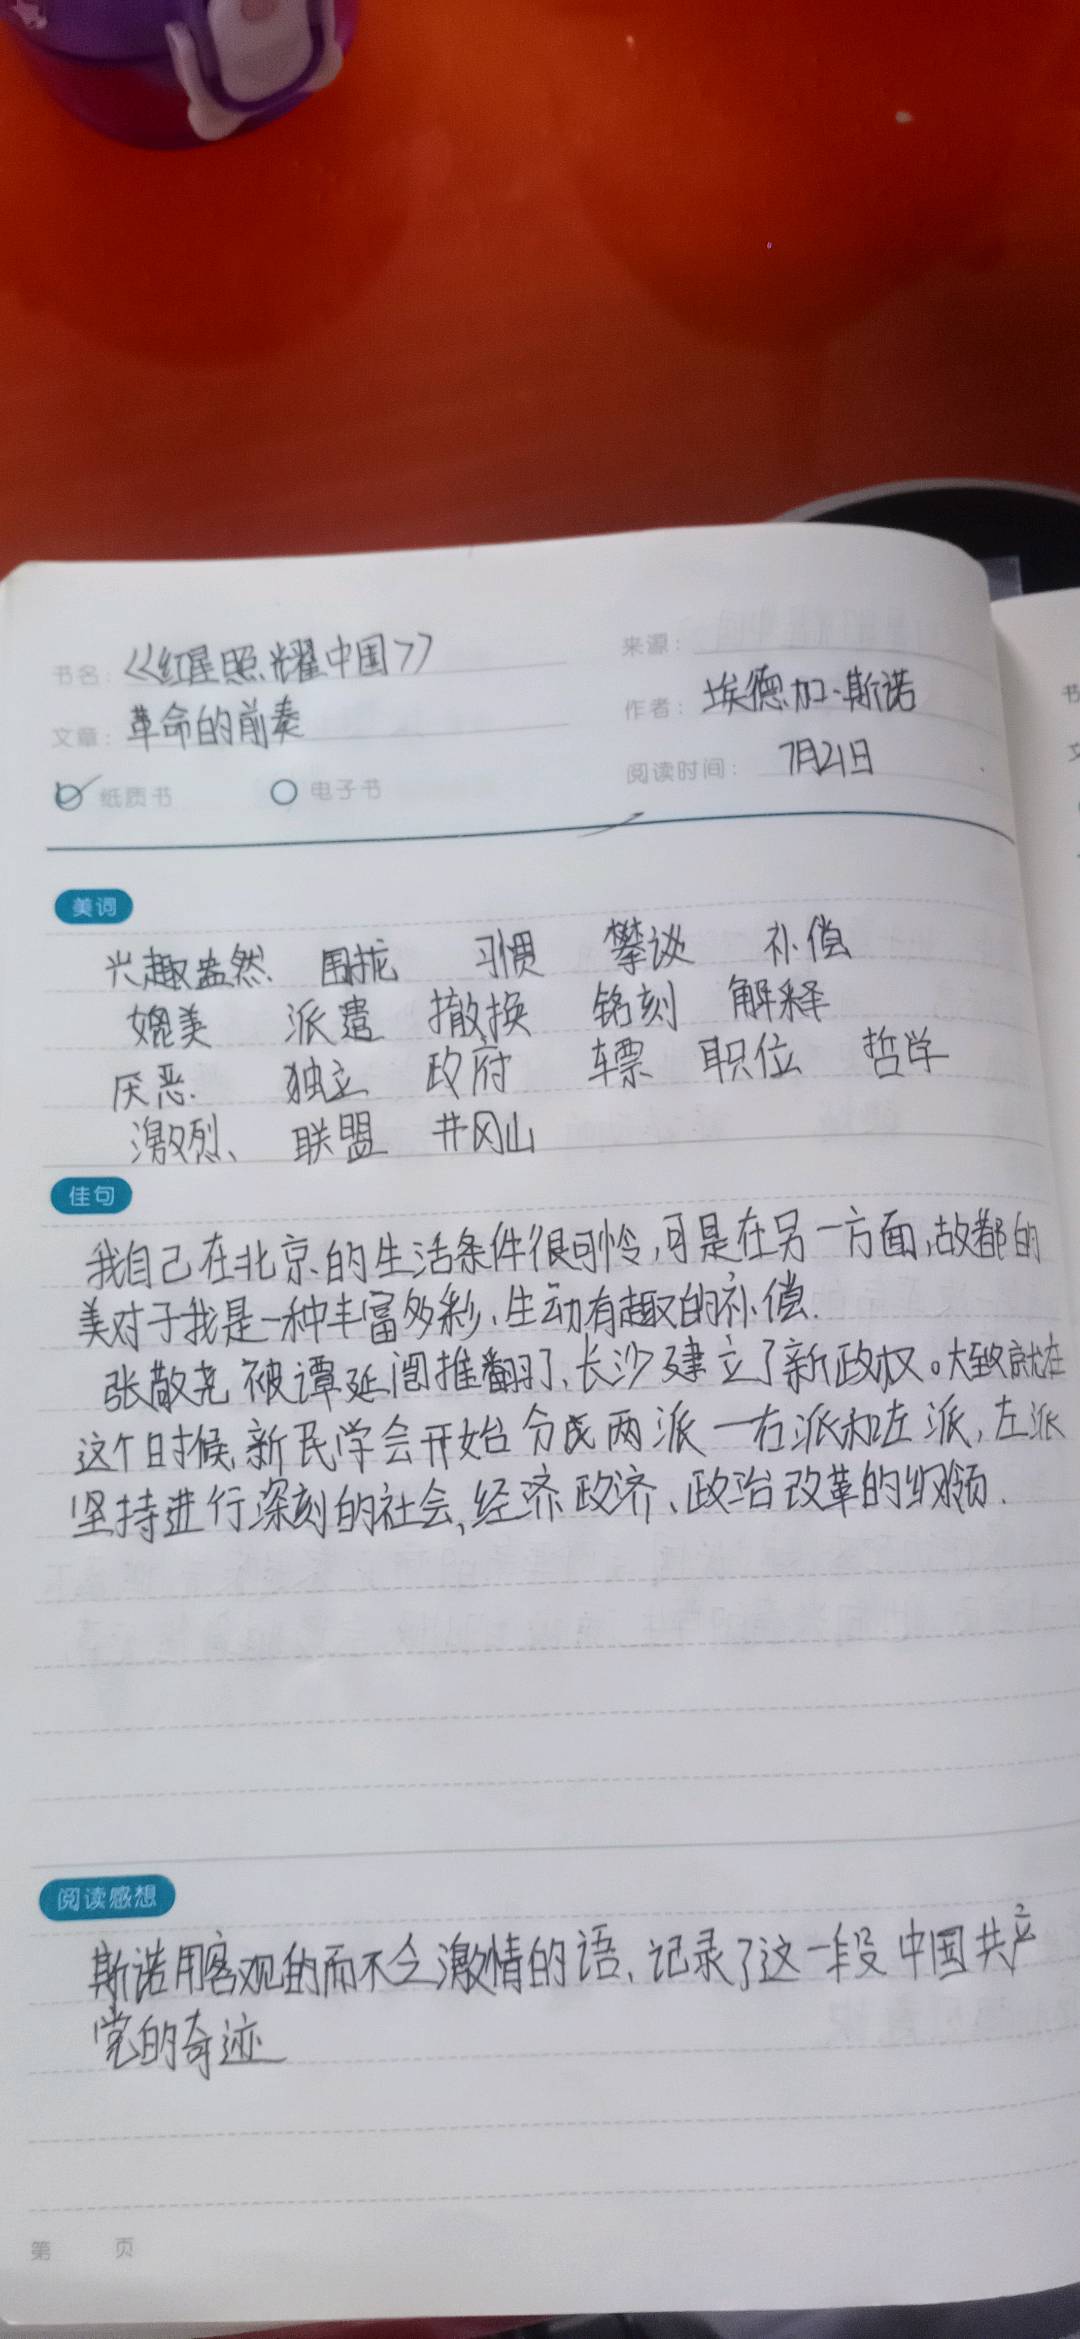 书名：《红星照耀中国》
来源：
文章：革命的前奏
作者：埃德加·斯诺
纸质书 电子书
阅读时间：7月21日
美词
兴趣盎然 围拢 习惯 攀谈 补偿
媲美 派遣 撤换 铭刻 解释
厌恶 独立 政府 车票 职位 哲学
激烈、 联盟 井冈山
佳句
我自己在北京的生活条件很可怜,可是在另一方面,故都的
美对于我是一种丰富多彩、生动有趣的补偿.
张敬尧被谭延闿推翻了,长沙建立了新政权。大致就在
这个时候,新民学会开始分成两派一右派和左派,左派
坚持进行深刻的社会,经济政济、政治改革的纲领.
阅读感想
斯诺用客观的而不令激情的语,记录了这一段中国共产
党的奇迹
第 页